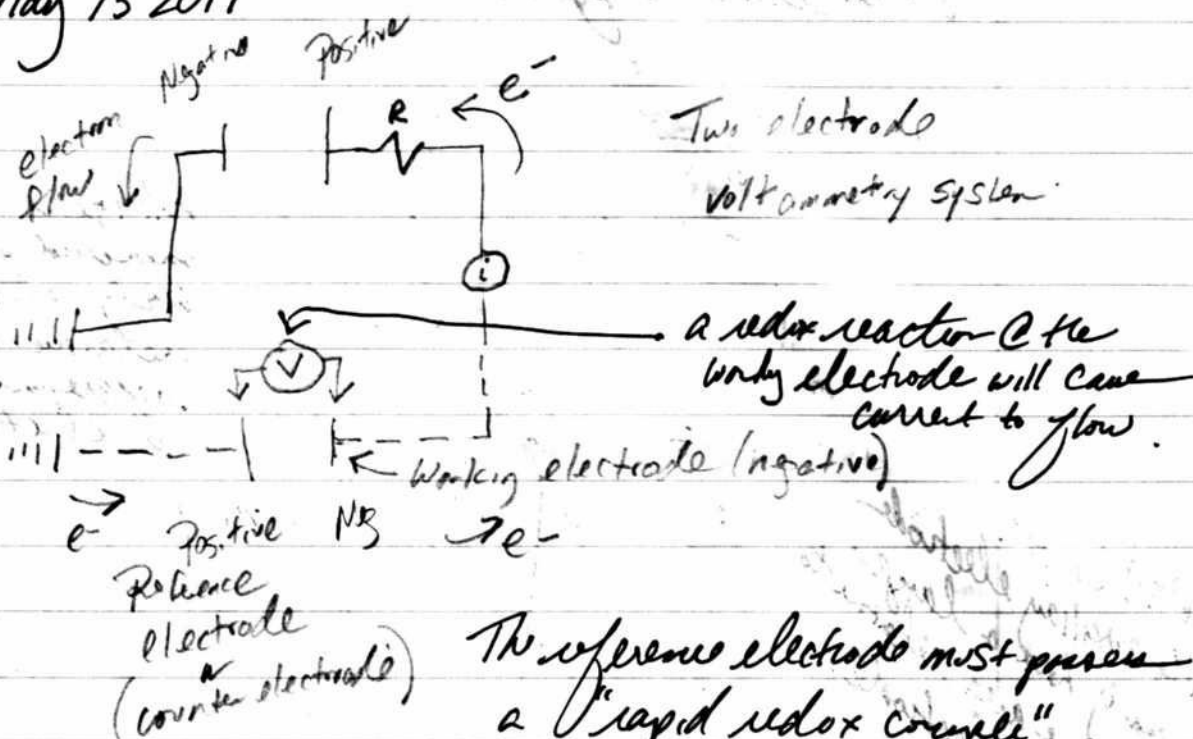 May 13 2017
Negative Positive
electron
flow
R
e-
Two electrode
voltammetry system
i
V
a redox reaction @ the
working electrode will cause
current to flow.
Working electrode (negative)
e-
Positive Neg
e-
Reference
electrode
(counter electrode)
The reference electrode must possess
a "rapid redox couple"